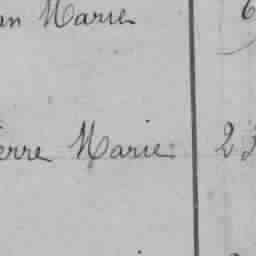 an Marie 6
erre Marie 23